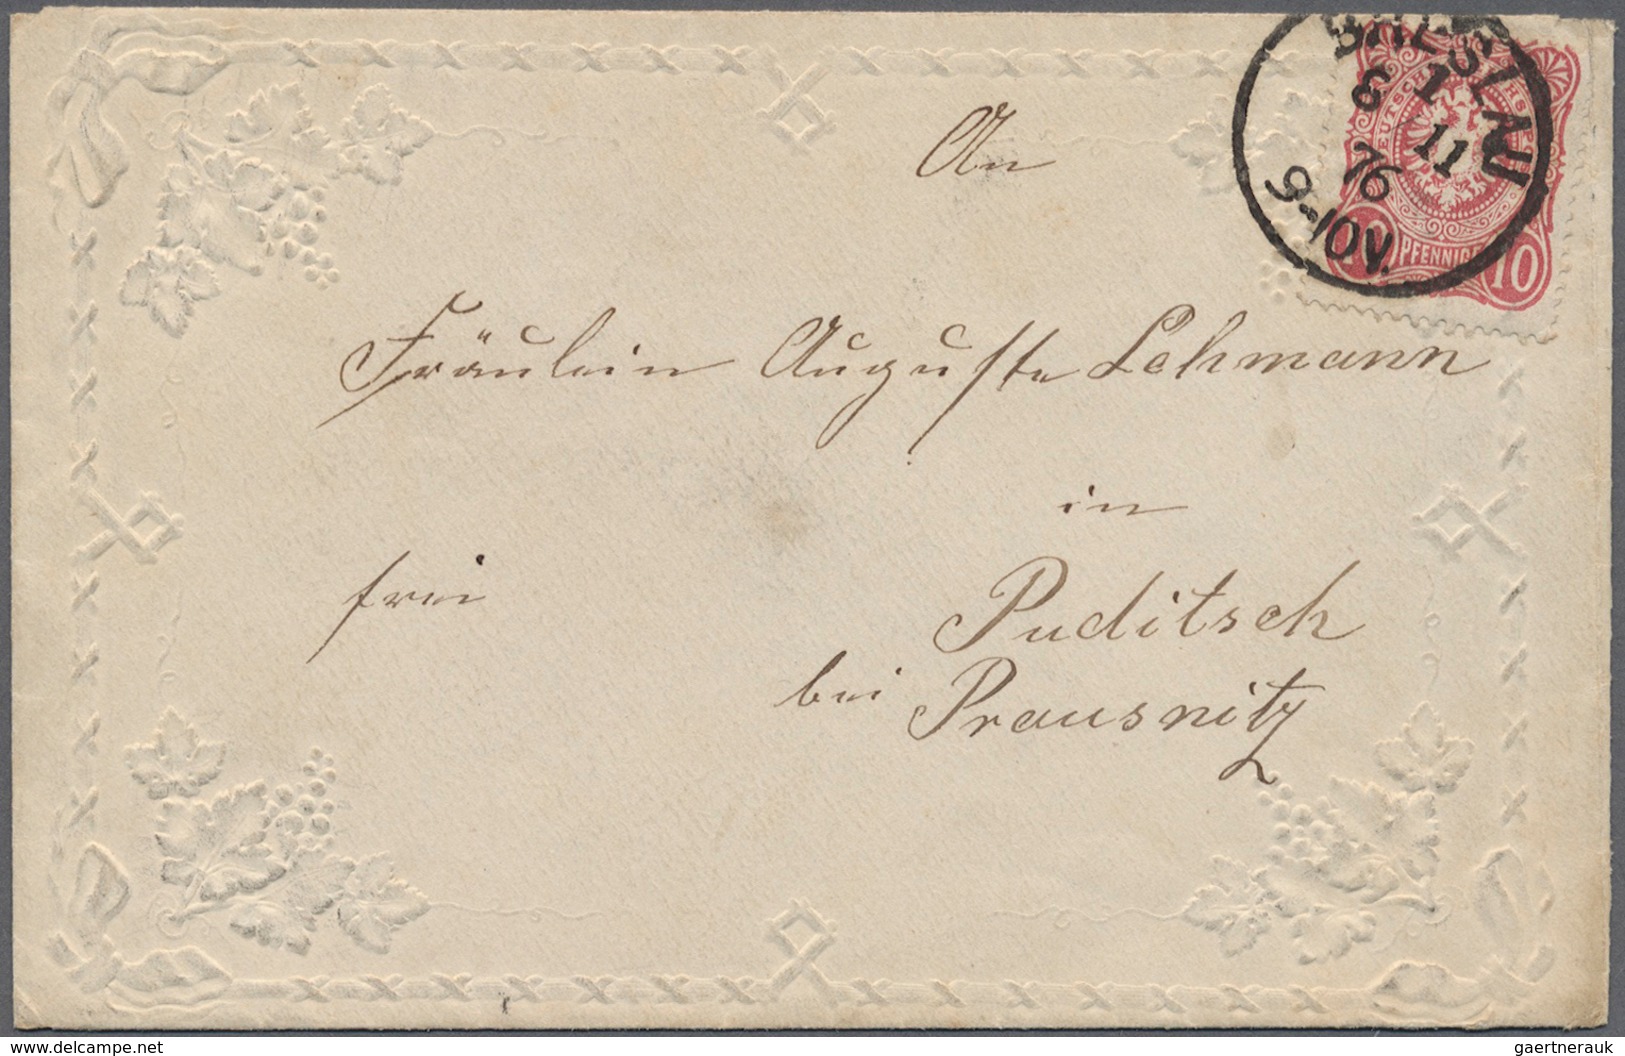 BRESLAU
8 1
11
76
9-10V.
DEUTSCHE REICHSPOST
10 PFENNIG 10
An
Fräulein Auguste Lehmann
in
frei
Puditsch
bei Prausnitz
www.delcampe.net
gaertnerauk